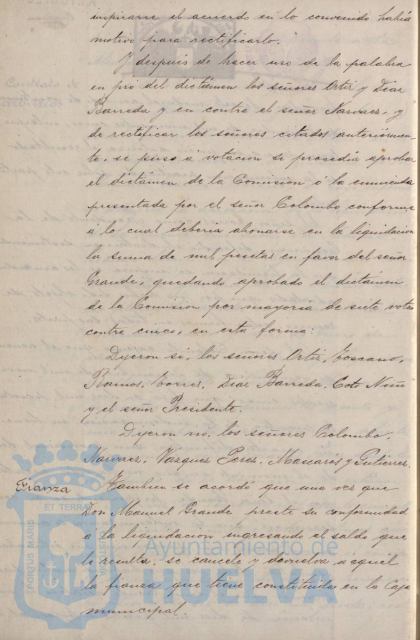 inspirarse el acuerdo en lo convenido había
motivo para rectificarlo.
Y después de hacer uso de la palabra
en pró del dictámen los señores Ortiz y Diaz
Barreda y en contra el señor Navarez, y
de rectificar los señores citados anteriormen-
te, se puso á votación si procedia aprobar
el dictámen de la Comision ó la enmienda
presentada por el señor Colombo conforme
á lo cual debería abonarse en la liquidacion
la suma de mil pesetas en favor del señor
Grande, quedando aprobado el dictámen
de la Comision por mayoria de siete votos
contra cinco, en esta forma:
Dijeron si, los señores Ortiz, Toscano,
Ramos, Torres, Diaz Barreda, Coto Niño
y el señor Presidente.
Dijeron no, los señores Colombo,
Vazquez Perez, y Gutierrez.
Fianza
Tambien se acordó que una vez que
Don Manuel Grande preste su conformidad
á la liquidacion ingresando el saldo que
le resulta, se cancele y devuelva á aquel
la fianza que tiene constituida en la Caja
municipal.
PORTUS MARIS
ET TERRAE
Ayuntamiento de
HUELVA